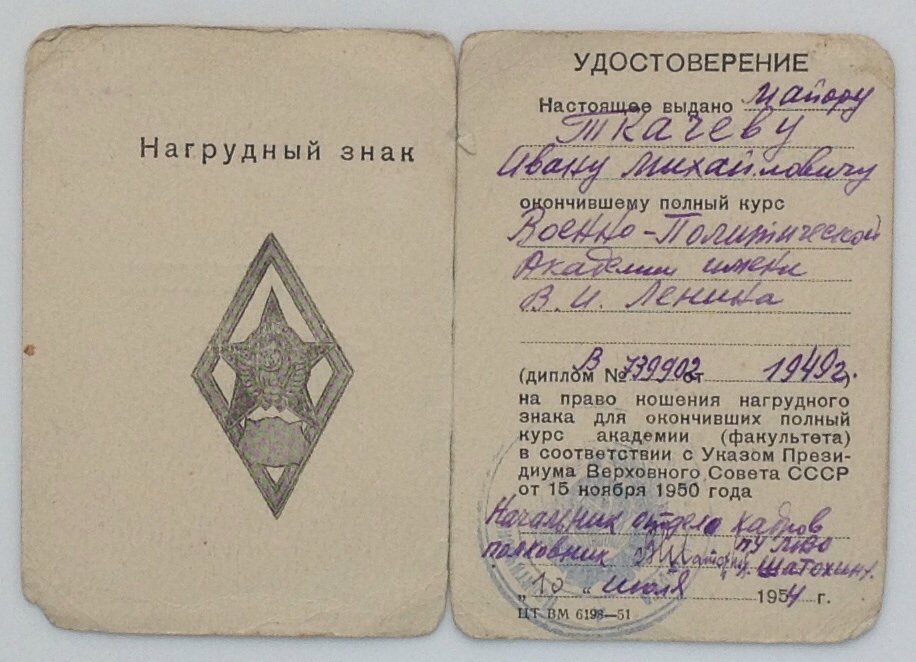 Нагрудный знак
УДОСТОВЕРЕНИЕ
Настоящее выдано Майору
Ткачеву
Ивану Михайловичу
окончившему полный курс
Военно-Политической
Академии имени
В. И. Ленина
(диплом № В 739902 от 1949 г.)
на право ношения нагрудного
знака для окончивших полный
курс академии (факультета)
в соответствии с Указом Прези-
диума Верховного Совета СССР
от 15 ноября 1950 года
Начальник отдела кадров
полковник ПУ
Шатохин
„10“ июля 1954 г.
ЦТ ВМ 6198—51